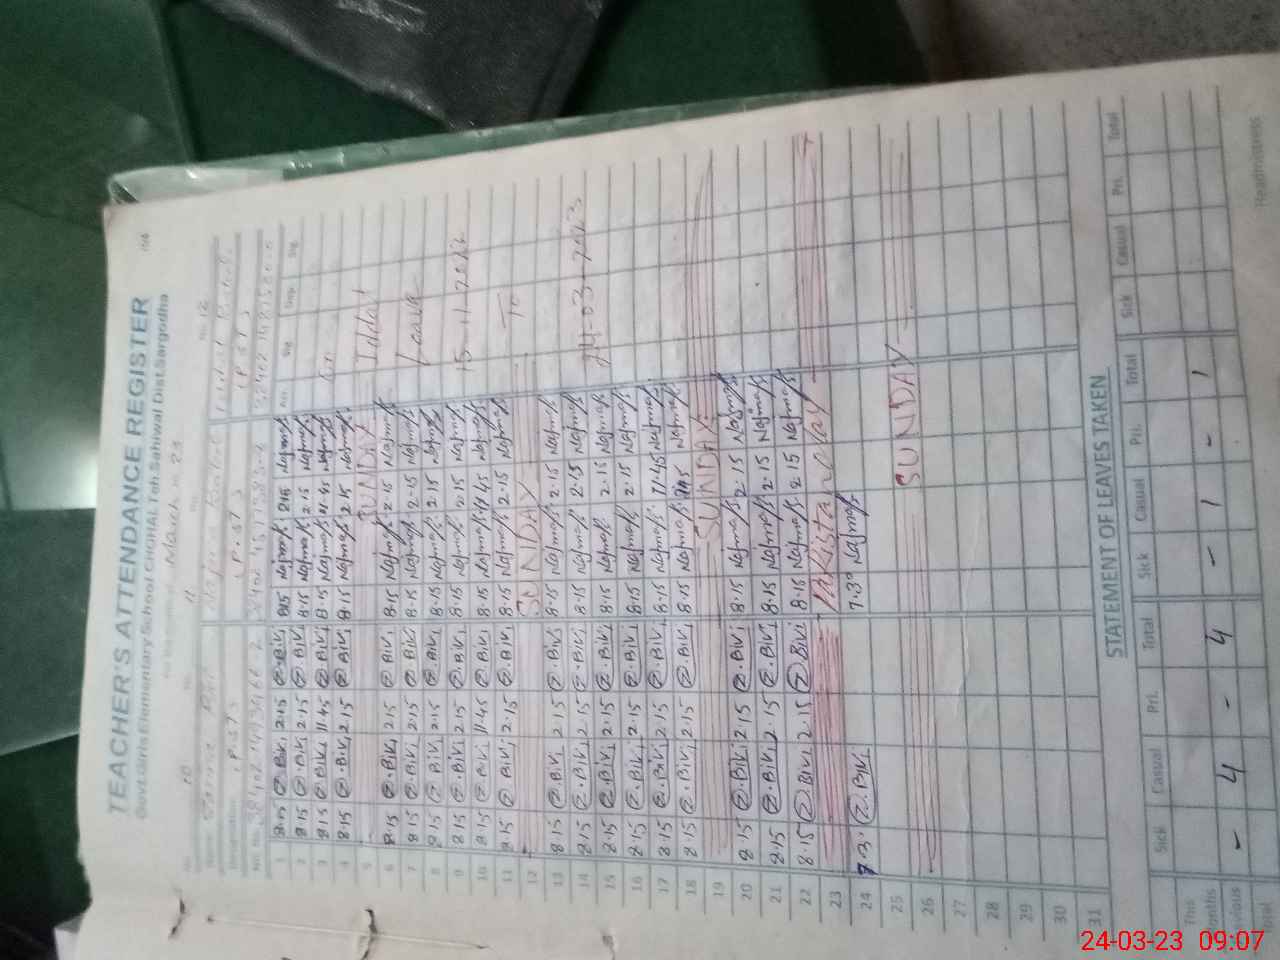 TEACHER'S ATTENDANCE REGISTER
Govt.Girls Elementary School CHOHAL Teh.Sahiwal Dist.Sargodha
March 23
No. 10 11 No. 12
P.S.T P.S.T P.S.T
1 8.15 Z.Bivi 2.15 Z.Bivi 8.15 Najma 2.15 Najma
2 8.15 Z.Bivi 2.15 Z.Bivi 8.15 Najma 2.15 Najma
3 8.15 Z.Bivi 11.45 Z.Bivi 8.15 Najma 11.45 Najma
4 8.15 Z.Bivi 2.15 Z.Bivi 8.15 Najma 2.15 Najma
5 SUNDAY Iddat
6 8.15 Z.Bivi 2.15 Z.Bivi 8.15 Najma 2.15 Najma
7 8.15 Z.Bivi 2.15 Z.Bivi 8.15 Najma 2.15 Najma Leave
8 8.15 Z.Bivi 2.15 Z.Bivi 8.15 Najma 2.15 Najma
9 8.15 Z.Bivi 2.15 Z.Bivi 8.15 Najma 2.15 Najma 15-11-2022
10 8.15 Z.Bivi 11.45 Z.Bivi 8.15 Najma 11.45 Najma
11 8.15 Z.Bivi 2.15 Z.Bivi 8.15 Najma 2.15 Najma To
12 SUNDAY
13 8.15 Z.Bivi 2.15 Z.Bivi 8.15 Najma 2.15 Najma
14 8.15 Z.Bivi 2.15 Z.Bivi 8.15 Najma 2.15 Najma 24-03-2023
15 8.15 Z.Bivi 2.15 Z.Bivi 8.15 Najma 2.15 Najma
16 8.15 Z.Bivi 2.15 Z.Bivi 8.15 Najma 2.15 Najma
17 8.15 Z.Bivi 2.15 Z.Bivi 8.15 Najma 11.45 Najma
18 8.15 Z.Bivi 2.15 Z.Bivi 8.15 Najma Najma
19 SUNDAY
20 8.15 Z.Bivi 2.15 Z.Bivi 8.15 Najma 2.15 Najma
21 8.15 Z.Bivi 2.15 Z.Bivi 8.15 Najma 2.15 Najma
22 8.15 Z.Bivi 2.15 Z.Bivi 8.15 Najma 2.15 Najma
23 Pakistan day
24 7.3 Z.Bivi 7.30 Najma
25 SUNDAY
26
27
28
29
30
31
STATEMENT OF LEAVES TAKEN
Sick Casual Pri. Total Sick Casual Pri. Total Sick Casual Pri. Total
This
Months
Previous - 4 - 4 - 1 - 1
Total
Headmistress
24-03-23 09:07